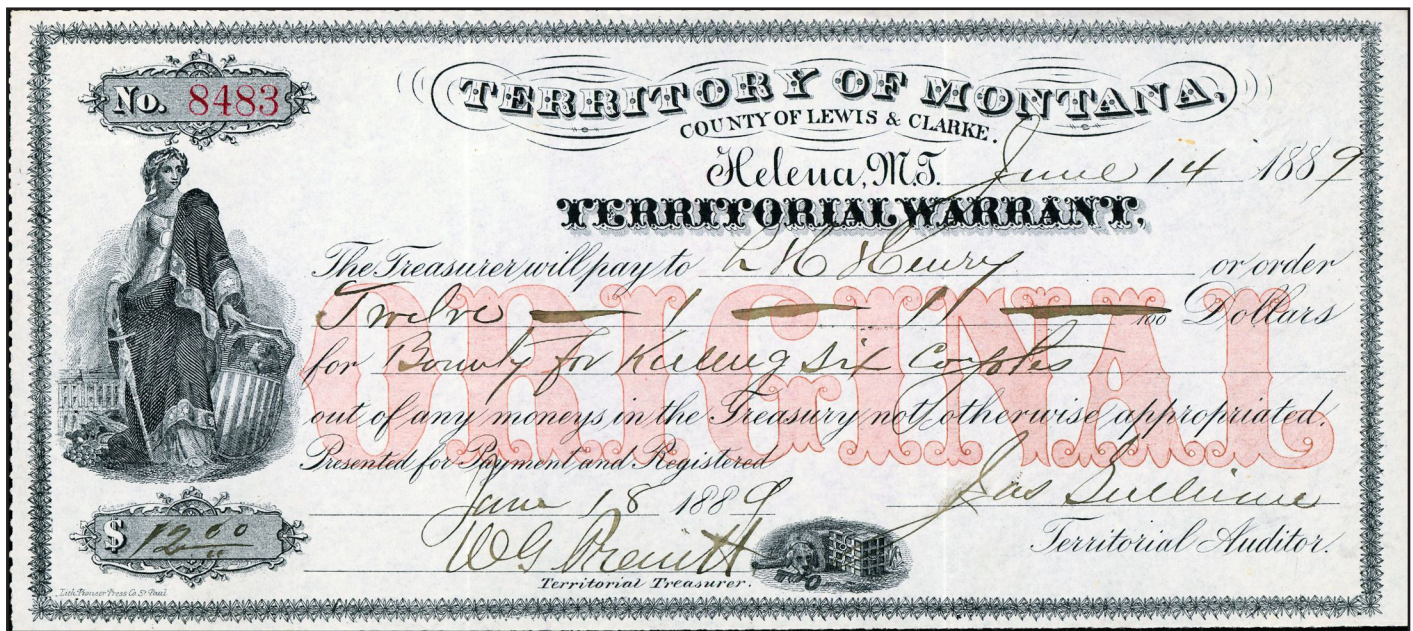 No. 8483
TERRITORY OF MONTANA,
COUNTY OF LEWIS & CLARKE.
Helena, M.T. June 14 1889
TERRITORIAL WARRANT,
The Treasurer will pay to L H Henry or order
Twelve 100 Dollars
for Bounty for Killing Six Coyotes
ORIGINAL
out of any moneys in the Treasury not otherwise appropriated.
Presented for Payment and Registered
June 18 1889
Jas Sullivan
$ 12.00
W G Preuitt
Territorial Auditor.
Territorial Treasurer.
Lith. Pioneer Press Co. St. Paul